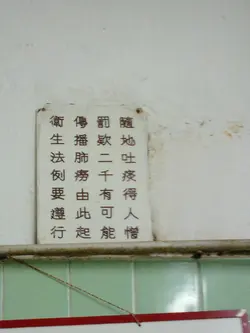 隨地吐痰得人憎
罰欵二千有可能
傳播肺癆由此起
衛生法例要遵行